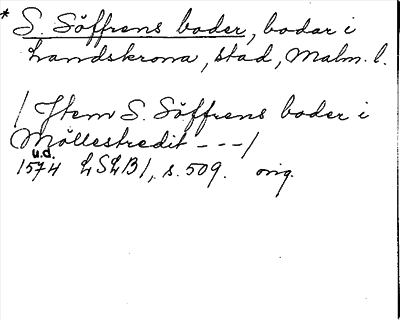 * S. Söffrens boder, bodar i
Landskrona, stad, Malm. l.
/ Jtem S. Söffrens boder i
Möllestredit - - - /
u.d.
1574 LSLB1, s. 509. orig.